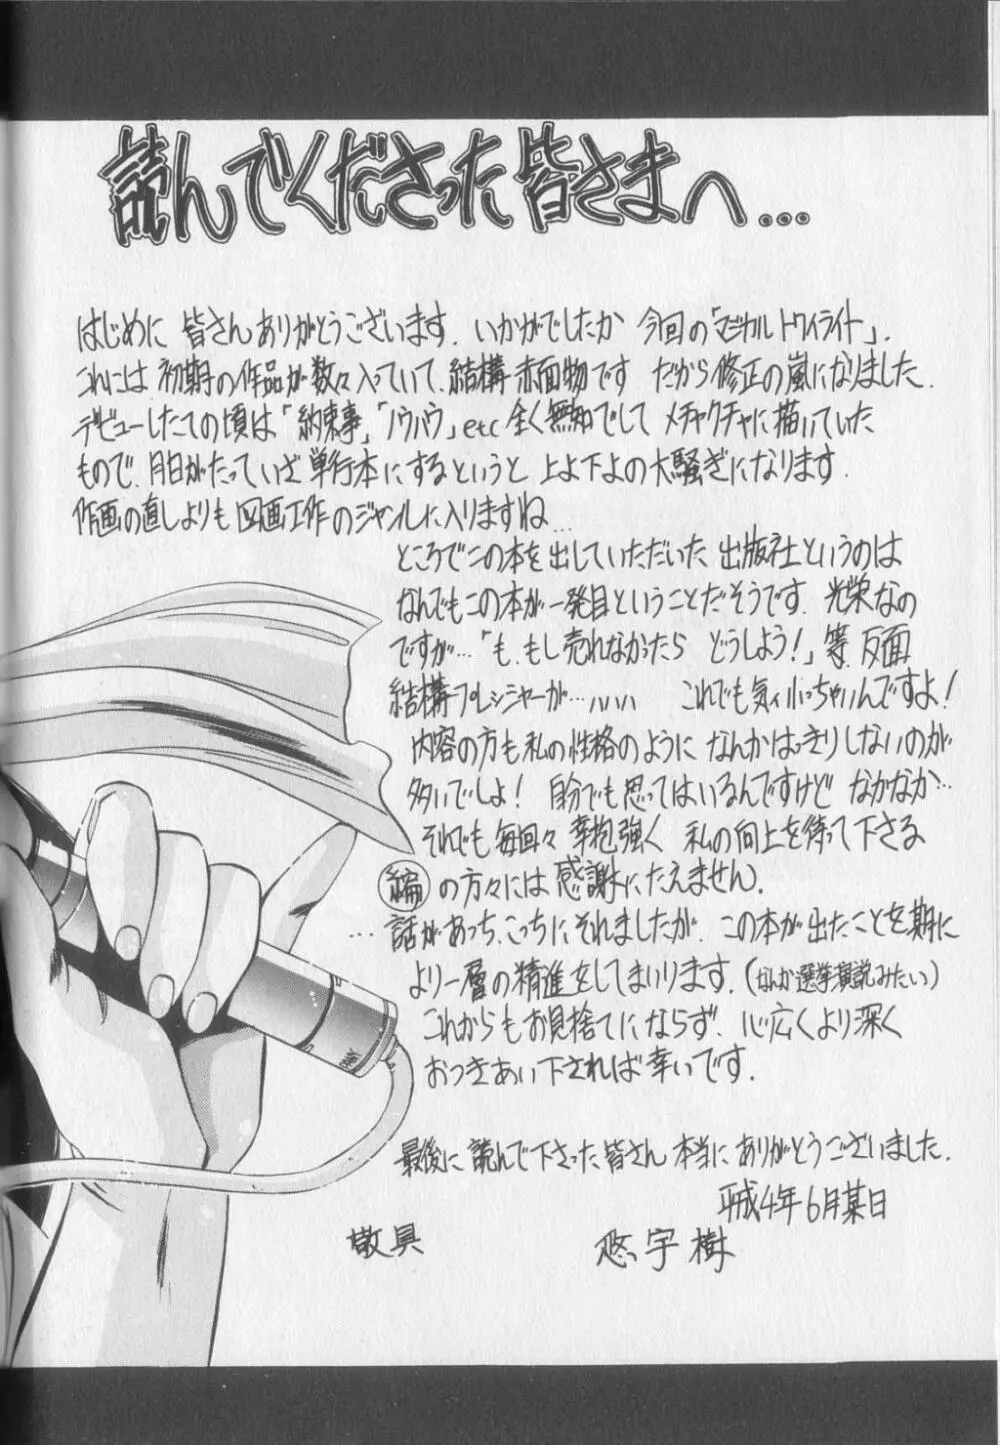 読んでくださった皆さまへ...
はじめに 皆さんありがとうございます. いかがでしたか 今回の「マジカルトワイライト」.
これには 初期の作品が数々入っていて、結構赤面物です だから修正の嵐になりました.
デビューしたての頃は「約束事」「ノウハウ」etc 全く無知でして メチャクチャに描いていた
もので、月日がたっていざ 単行本にするというと 上よ下よの大騒ぎになります.
作画の直しよりも 図画工作のジャンルに入りますね...
ところでこの本を出していただいた 出版社というのは
なんでもこの本が一発目ということだそうです. 光栄なの
ですが…「も、もし売れなかったら どうしよう!」等、反面
結構プレッシャーが…ハハハ これでも気ィ小っちゃいんですよ!
内容の方も私の性格のように なんかはっきりしないのが
多いでしょ! 自分でも思ってはいるんですけど なかなか…
それでも 毎回々 辛抱強く 私の向上を待って下さる
編の方々には 感謝にたえません.
…話があっち、こっちに、それましたが、この本が出たことを期に
より一層の精進をしてまいります.(なんか選挙演説みたい)
これからもお見捨てにならず、心広くより深く
おつきあい下されば幸いです.
最後に 読んで下さった皆さん 本当にありがとうございました.
平成4年6月某日
敬具 悠宇樹